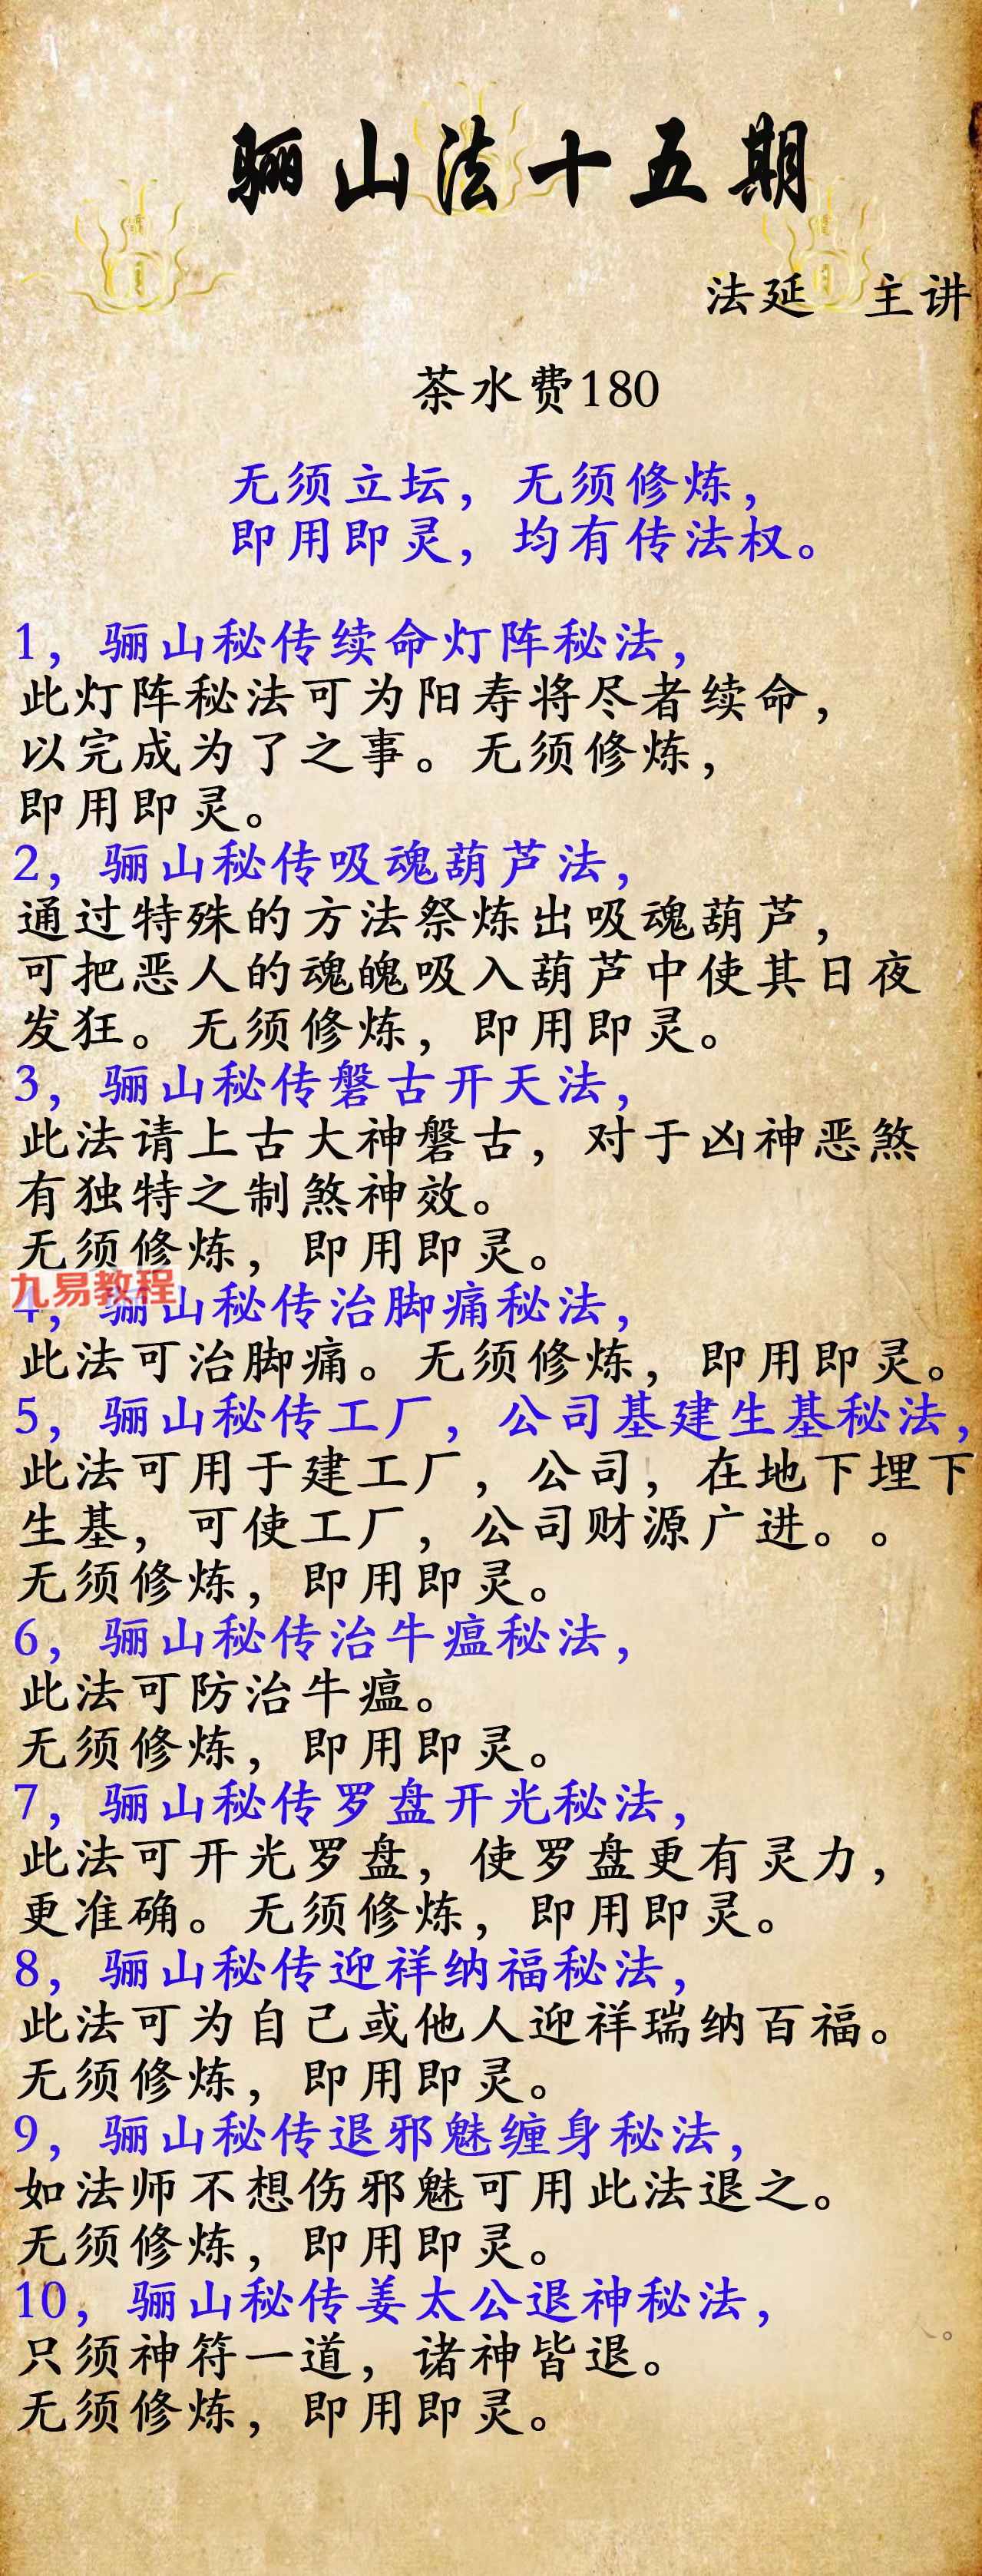 骊山法十五期
法延 主讲
茶水费180
无须立坛，无须修炼，
即用即灵，均有传法权。
1，骊山秘传续命灯阵秘法，
此灯阵秘法可为阳寿将尽者续命，
以完成为了之事。无须修炼，
即用即灵。
2，骊山秘传吸魂葫芦法，
通过特殊的方法祭炼出吸魂葫芦，
可把恶人的魂魄吸入葫芦中使其日夜
发狂。无须修炼，即用即灵。
3，骊山秘传磐古开天法，
此法请上古大神磐古，对于凶神恶煞
有独特之制煞神效。
无须修炼，即用即灵。
九易教程
4，骊山秘传治脚痛秘法，
此法可治脚痛。无须修炼，即用即灵。
5，骊山秘传工厂，公司基建生基秘法，
此法可用于建工厂，公司，在地下埋下
生基，可使工厂，公司财源广进。。
无须修炼，即用即灵。
6，骊山秘传治牛瘟秘法，
此法可防治牛瘟。
无须修炼，即用即灵。
7，骊山秘传罗盘开光秘法，
此法可开光罗盘，使罗盘更有灵力，
更准确。无须修炼，即用即灵。
8，骊山秘传迎祥纳福秘法，
此法可为自己或他人迎祥瑞纳百福。
无须修炼，即用即灵。
9，骊山秘传退邪魅缠身秘法，
如法师不想伤邪魅可用此法退之。
无须修炼，即用即灵。
10，骊山秘传姜太公退神秘法，
只须神符一道，诸神皆退。
无须修炼，即用即灵。